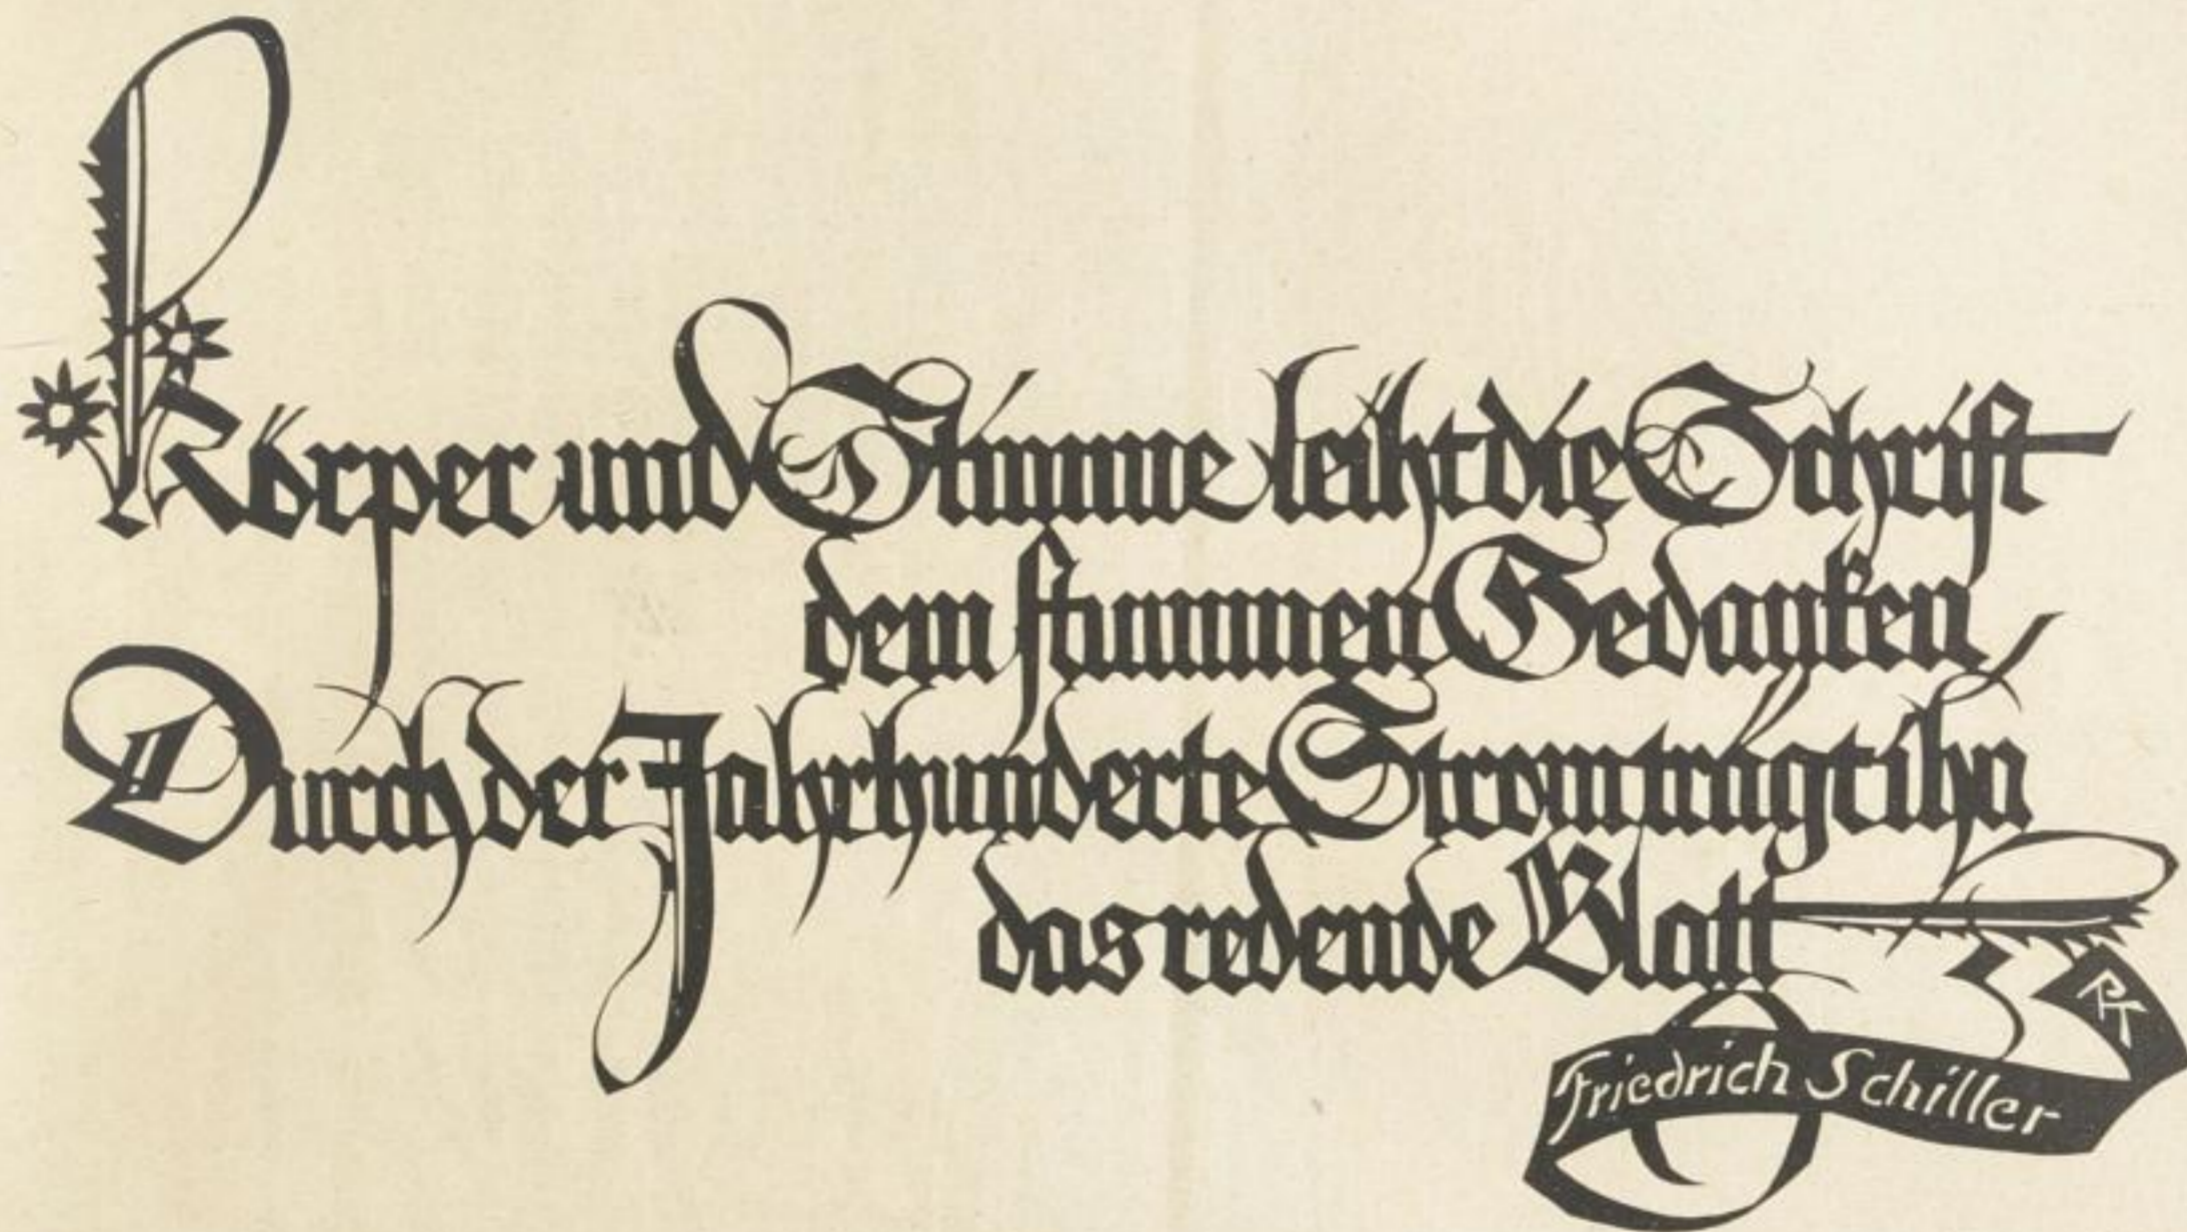 Körper und Stimme leiht die Schrift
dem stummen Gedanken
Durch der Jahrhunderte Strom trägt ihn
das redende Blatt
RT
Friedrich Schiller